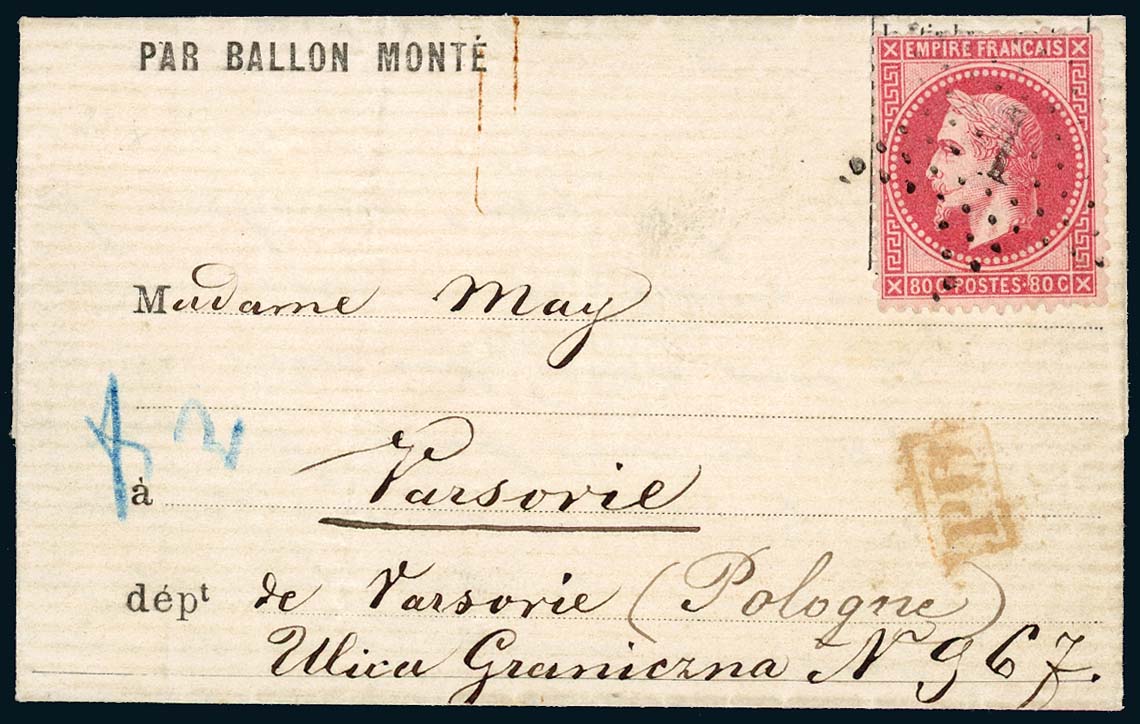 PAR BALLON MONTÉ
EMPIRE FRANCAIS
80 C POSTES 80 C
Madame May
à Varsovie
dépt de Varsovie (Pologne)
Ulica Graniczna N 967.